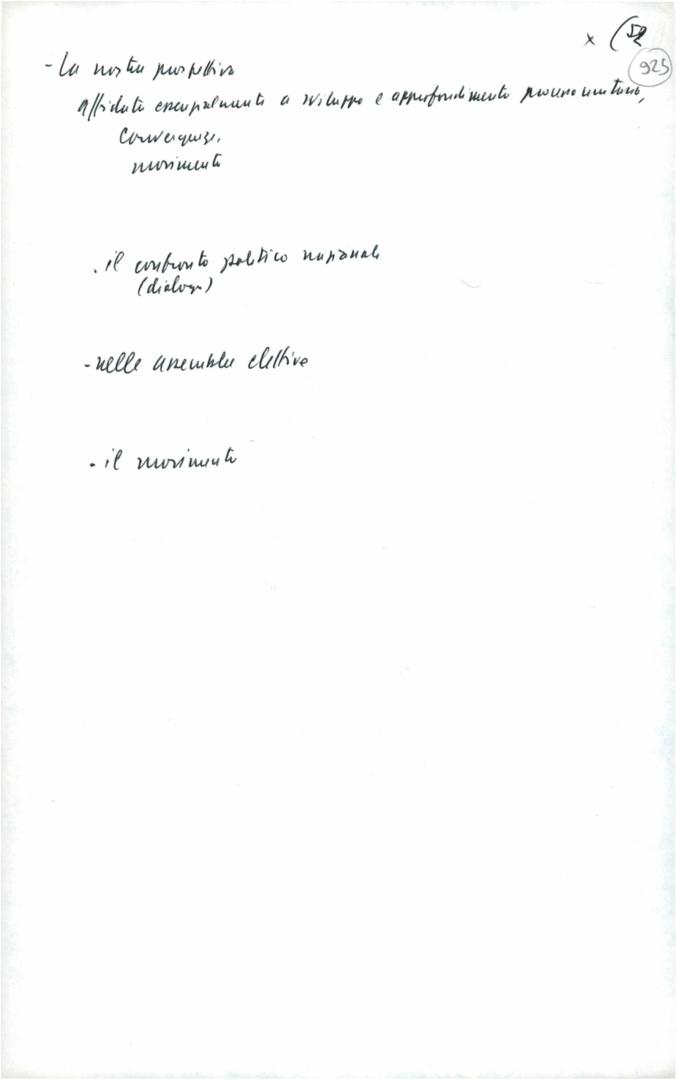 x (52
925
- La nostra prospettiva
affidata essenzialmente a sviluppo e approfondimento processo unitario,
convergenze,
movimento
. il confronto politico nazionale
(dialogo)
- nelle assemblee elettive
. il movimento